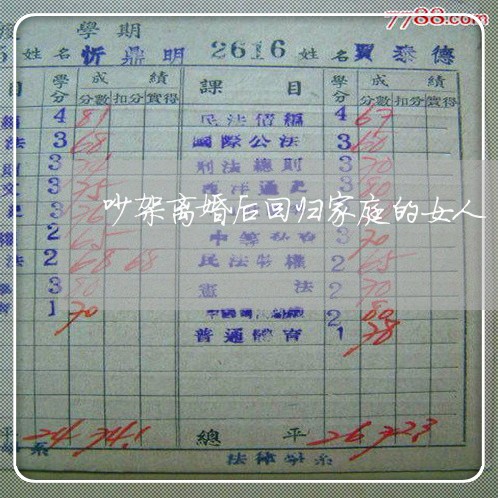 7788.com
學期
姓名 忻鼎明 2616 姓名 賈泰德
目 學分 成績 課目 學分 成績
分數 扣分 實得 分數 扣分 實得
4 81 民法債編 4 67
法 3 68 國際公法 3 60
3 刑法總則 3 70
3 75 西洋通史 3 80
吵架离婚后回归家庭的女人
2 65 3 70
法 2 68 68 民法物權 2 65
3 80 憲法 2 70
1 70 2 80
普通體育 1 78
平 24 74.1 總平 26 72.3
系 法律學系